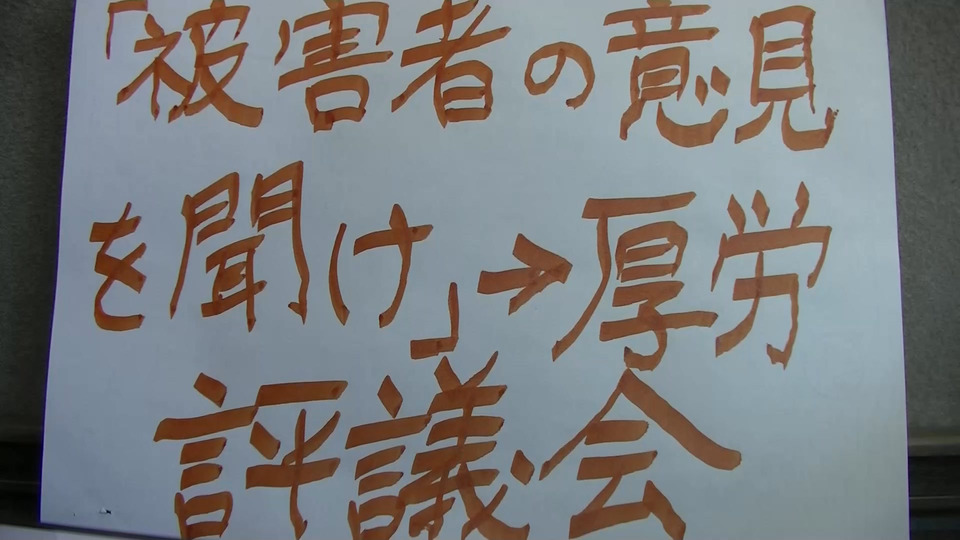 「被害者の意見
を聞け」→厚労
評議会